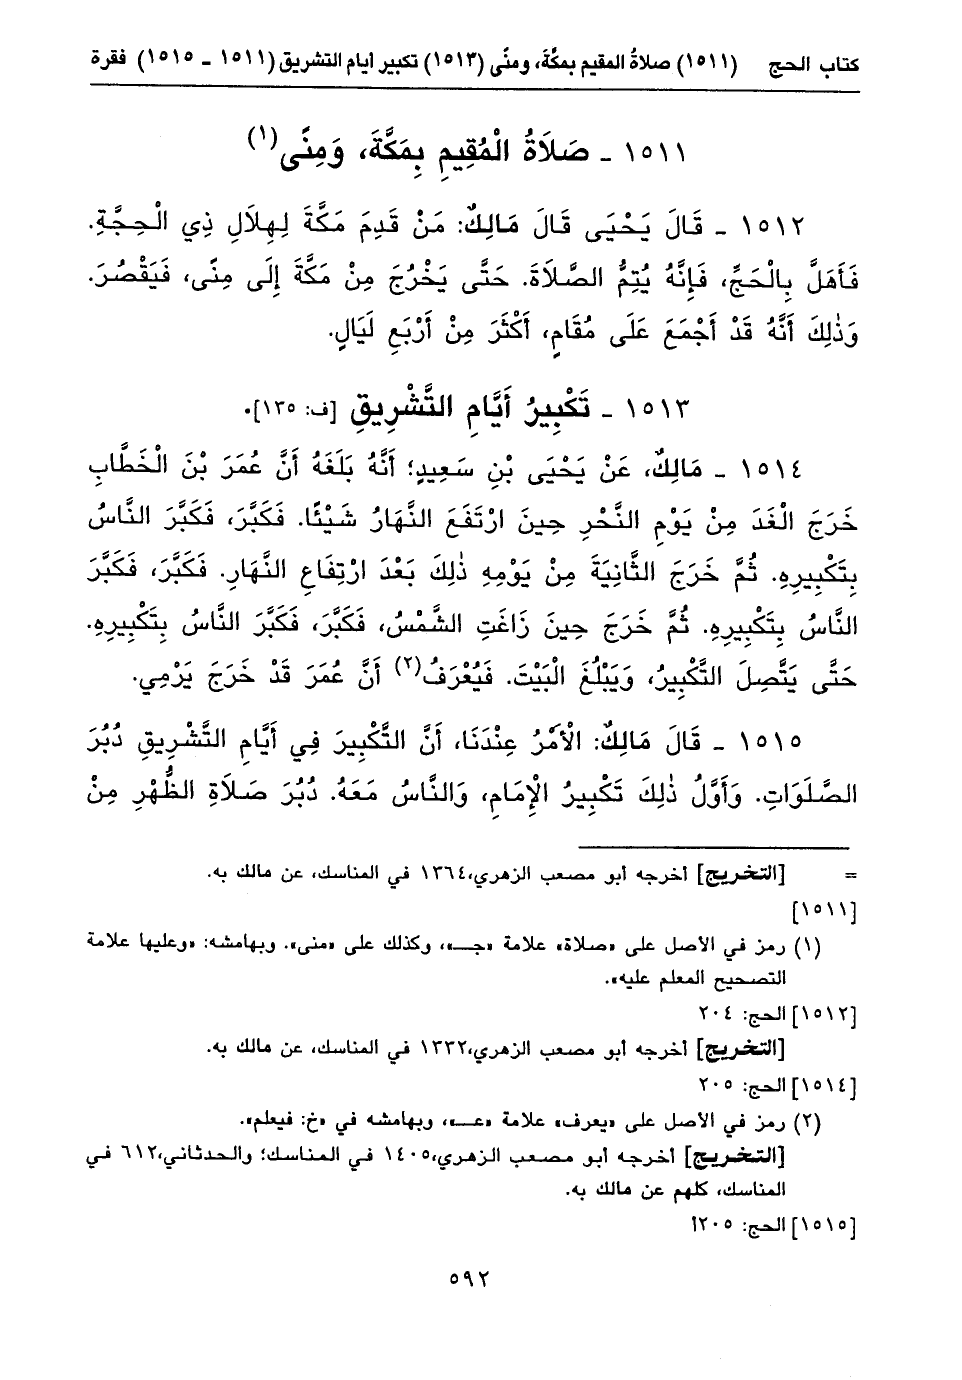 كتاب الحج (١٥١١) صلاةُ المقيم بمكَّةَ، ومنًى (١٥١٣) تكبير أيام التشريق (١٥١١ - ١٥١٥) فقرة
١٥١١ - صَلَاةُ الْمُقِيمِ بِمَكَّةَ، وَمِنًى(١)
١٥١٢ - قَالَ يَحْيَى قَالَ مَالِكٌ: مَنْ قَدِمَ مَكَّةَ لِهِلَالِ ذِي الْحِجَّةِ.
فَأَهَلَّ بِالْحَجِّ، فَإِنَّهُ يُتِمُّ الصَّلَاةَ. حَتَّى يَخْرُجَ مِنْ مَكَّةَ إِلَى مِنًى، فَيَقْصُرَ.
وَذٰلِكَ أَنَّهُ قَدْ أَجْمَعَ عَلَى مُقَامٍ، أَكْثَرَ مِنْ أَرْبَعِ لَيَالٍ.
١٥١٣ - تَكْبِيرُ أَيَّامِ التَّشْرِيقِ [ف: ١٣٥].
١٥١٤ - مَالِكٌ، عَنْ يَحْيَى بْنِ سَعِيدٍ؛ أَنَّهُ بَلَغَهُ أَنَّ عُمَرَ بْنَ الْخَطَّابِ
خَرَجَ الْغَدَ مِنْ يَوْمِ النَّحْرِ حِينَ ارْتَفَعَ النَّهَارُ شَيْئًا. فَكَبَّرَ، فَكَبَّرَ النَّاسُ
بِتَكْبِيرِهِ. ثُمَّ خَرَجَ الثَّانِيَةَ مِنْ يَوْمِهِ ذٰلِكَ بَعْدَ ارْتِفَاعِ النَّهَارِ. فَكَبَّرَ، فَكَبَّرَ
النَّاسُ بِتَكْبِيرِهِ. ثُمَّ خَرَجَ حِينَ زَاغَتِ الشَّمْسُ، فَكَبَّرَ، فَكَبَّرَ النَّاسُ بِتَكْبِيرِهِ.
حَتَّى يَتَّصِلَ التَّكْبِيرُ، وَيَبْلُغَ الْبَيْتَ. فَيُعْرَفُ(٢) أَنَّ عُمَرَ قَدْ خَرَجَ يَرْمِي.
١٥١٥ - قَالَ مَالِكٌ: الْأَمْرُ عِنْدَنَا، أَنَّ التَّكْبِيرَ فِي أَيَّامِ التَّشْرِيقِ دُبُرَ
الصَّلَوَاتِ. وَأَوَّلُ ذٰلِكَ تَكْبِيرُ الْإِمَامِ، وَالنَّاسُ مَعَهُ. دُبُرَ صَلَاةِ الظُّهْرِ مِنْ
= [التخريج] أخرجه أبو مصعب الزهري، ١٣٦٤ في المناسك، عن مالك به.
[١٥١١]
(١) رمز في الأصل على «صلاة» علامة «جـ»، وكذلك على «منى». وبهامشه: «وعليها علامة
التصحيح المعلم عليه».
[١٥١٢] الحج: ٢٠٤
[التخريج] أخرجه أبو مصعب الزهري، ١٣٣٢ في المناسك، عن مالك به.
[١٥١٤] الحج: ٢٠٥
(٢) رمز في الأصل على «يعرف» علامة «عـ»، وبهامشه في «خ: فيعلم».
[التخريج] أخرجه أبو مصعب الزهري، ١٤٠٥ في المناسك؛ والحدثاني، ٦١٢ في
المناسك، كلهم عن مالك به.
[١٥١٥] الحج: ٢٠٥أ
٥٩٢